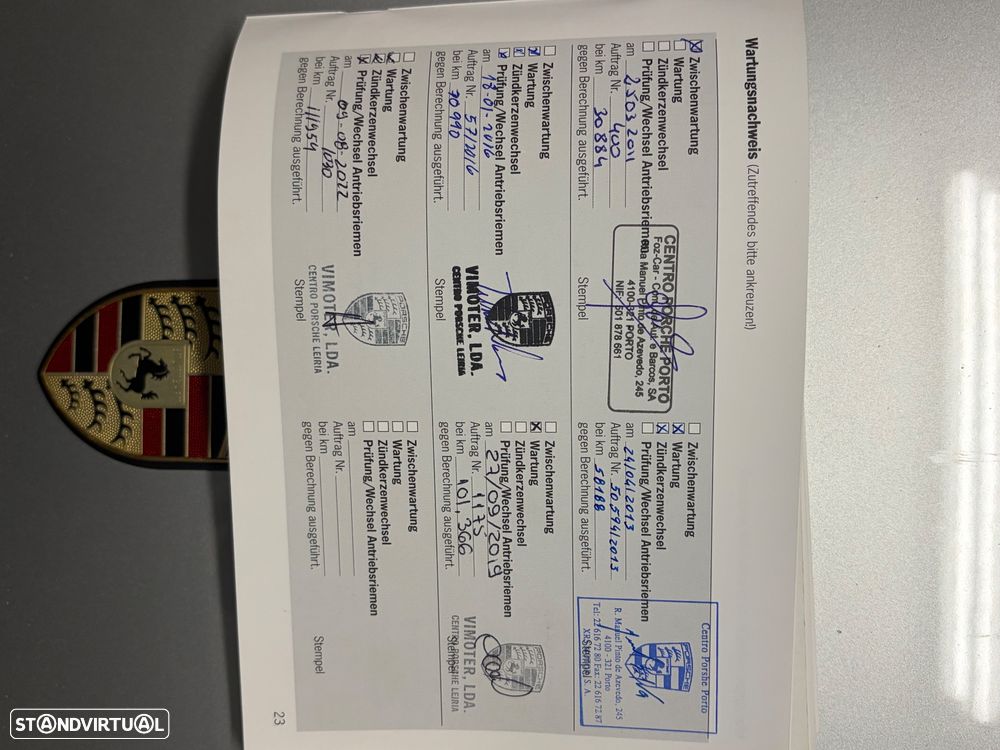 Wartungsnachweis (Zutreffendes bitte ankreuzen!)
Zwischenwartung
Wartung
Zündkerzenwechsel
Prüfung/Wechsel Antriebsriemen
am 25 03 2011
Auftrag Nr. 400
bei km 30 884
gegen Berechnung ausgeführt.
CENTRO PORSCHE PORTO
Foz-Car - Aut. e Barcos, SA
Rua Manuel Pinto de Azevedo, 245
4100-321 PORTO
NIF: 501 878 661
Stempel
Zwischenwartung
Wartung
Zündkerzenwechsel
Prüfung/Wechsel Antriebsriemen
am 24/04/2013
Auftrag Nr. 50.594/2013
bei km 58188
gegen Berechnung ausgeführt.
Centro Porshe Porto
PORSCHE
R. Manuel Pinto de Azevedo, 245
4100 - 321 Porto
Tel: 22 616 72 80 Fax: 22 616 72 87
S. A.
Stempel
Zwischenwartung
Wartung
Zündkerzenwechsel
Prüfung/Wechsel Antriebsriemen
am 18-01-2016
Auftrag Nr. 57/2016
bei km 70 990
gegen Berechnung ausgeführt.
PORSCHE
VIMOTER, LDA.
CENTRO PORSCHE LEIRIA
Stempel
Zwischenwartung
Wartung
Zündkerzenwechsel
Prüfung/Wechsel Antriebsriemen
am 27/09/2019
Auftrag Nr. 1175
bei km 101,366
gegen Berechnung ausgeführt.
PORSCHE
VIMOTER, LDA.
CENTRO PORSCHE LEIRIA
Stempel
Zwischenwartung
Wartung
Zündkerzenwechsel
Prüfung/Wechsel Antriebsriemen
am 09-08-2022
Auftrag Nr. 1030
bei km 111954
gegen Berechnung ausgeführt.
PORSCHE
VIMOTER, LDA.
CENTRO PORSCHE LEIRIA
Stempel
Zwischenwartung
Wartung
Zündkerzenwechsel
Prüfung/Wechsel Antriebsriemen
am
Auftrag Nr.
bei km
gegen Berechnung ausgeführt.
Stempel
23
STANDVIRTUAL